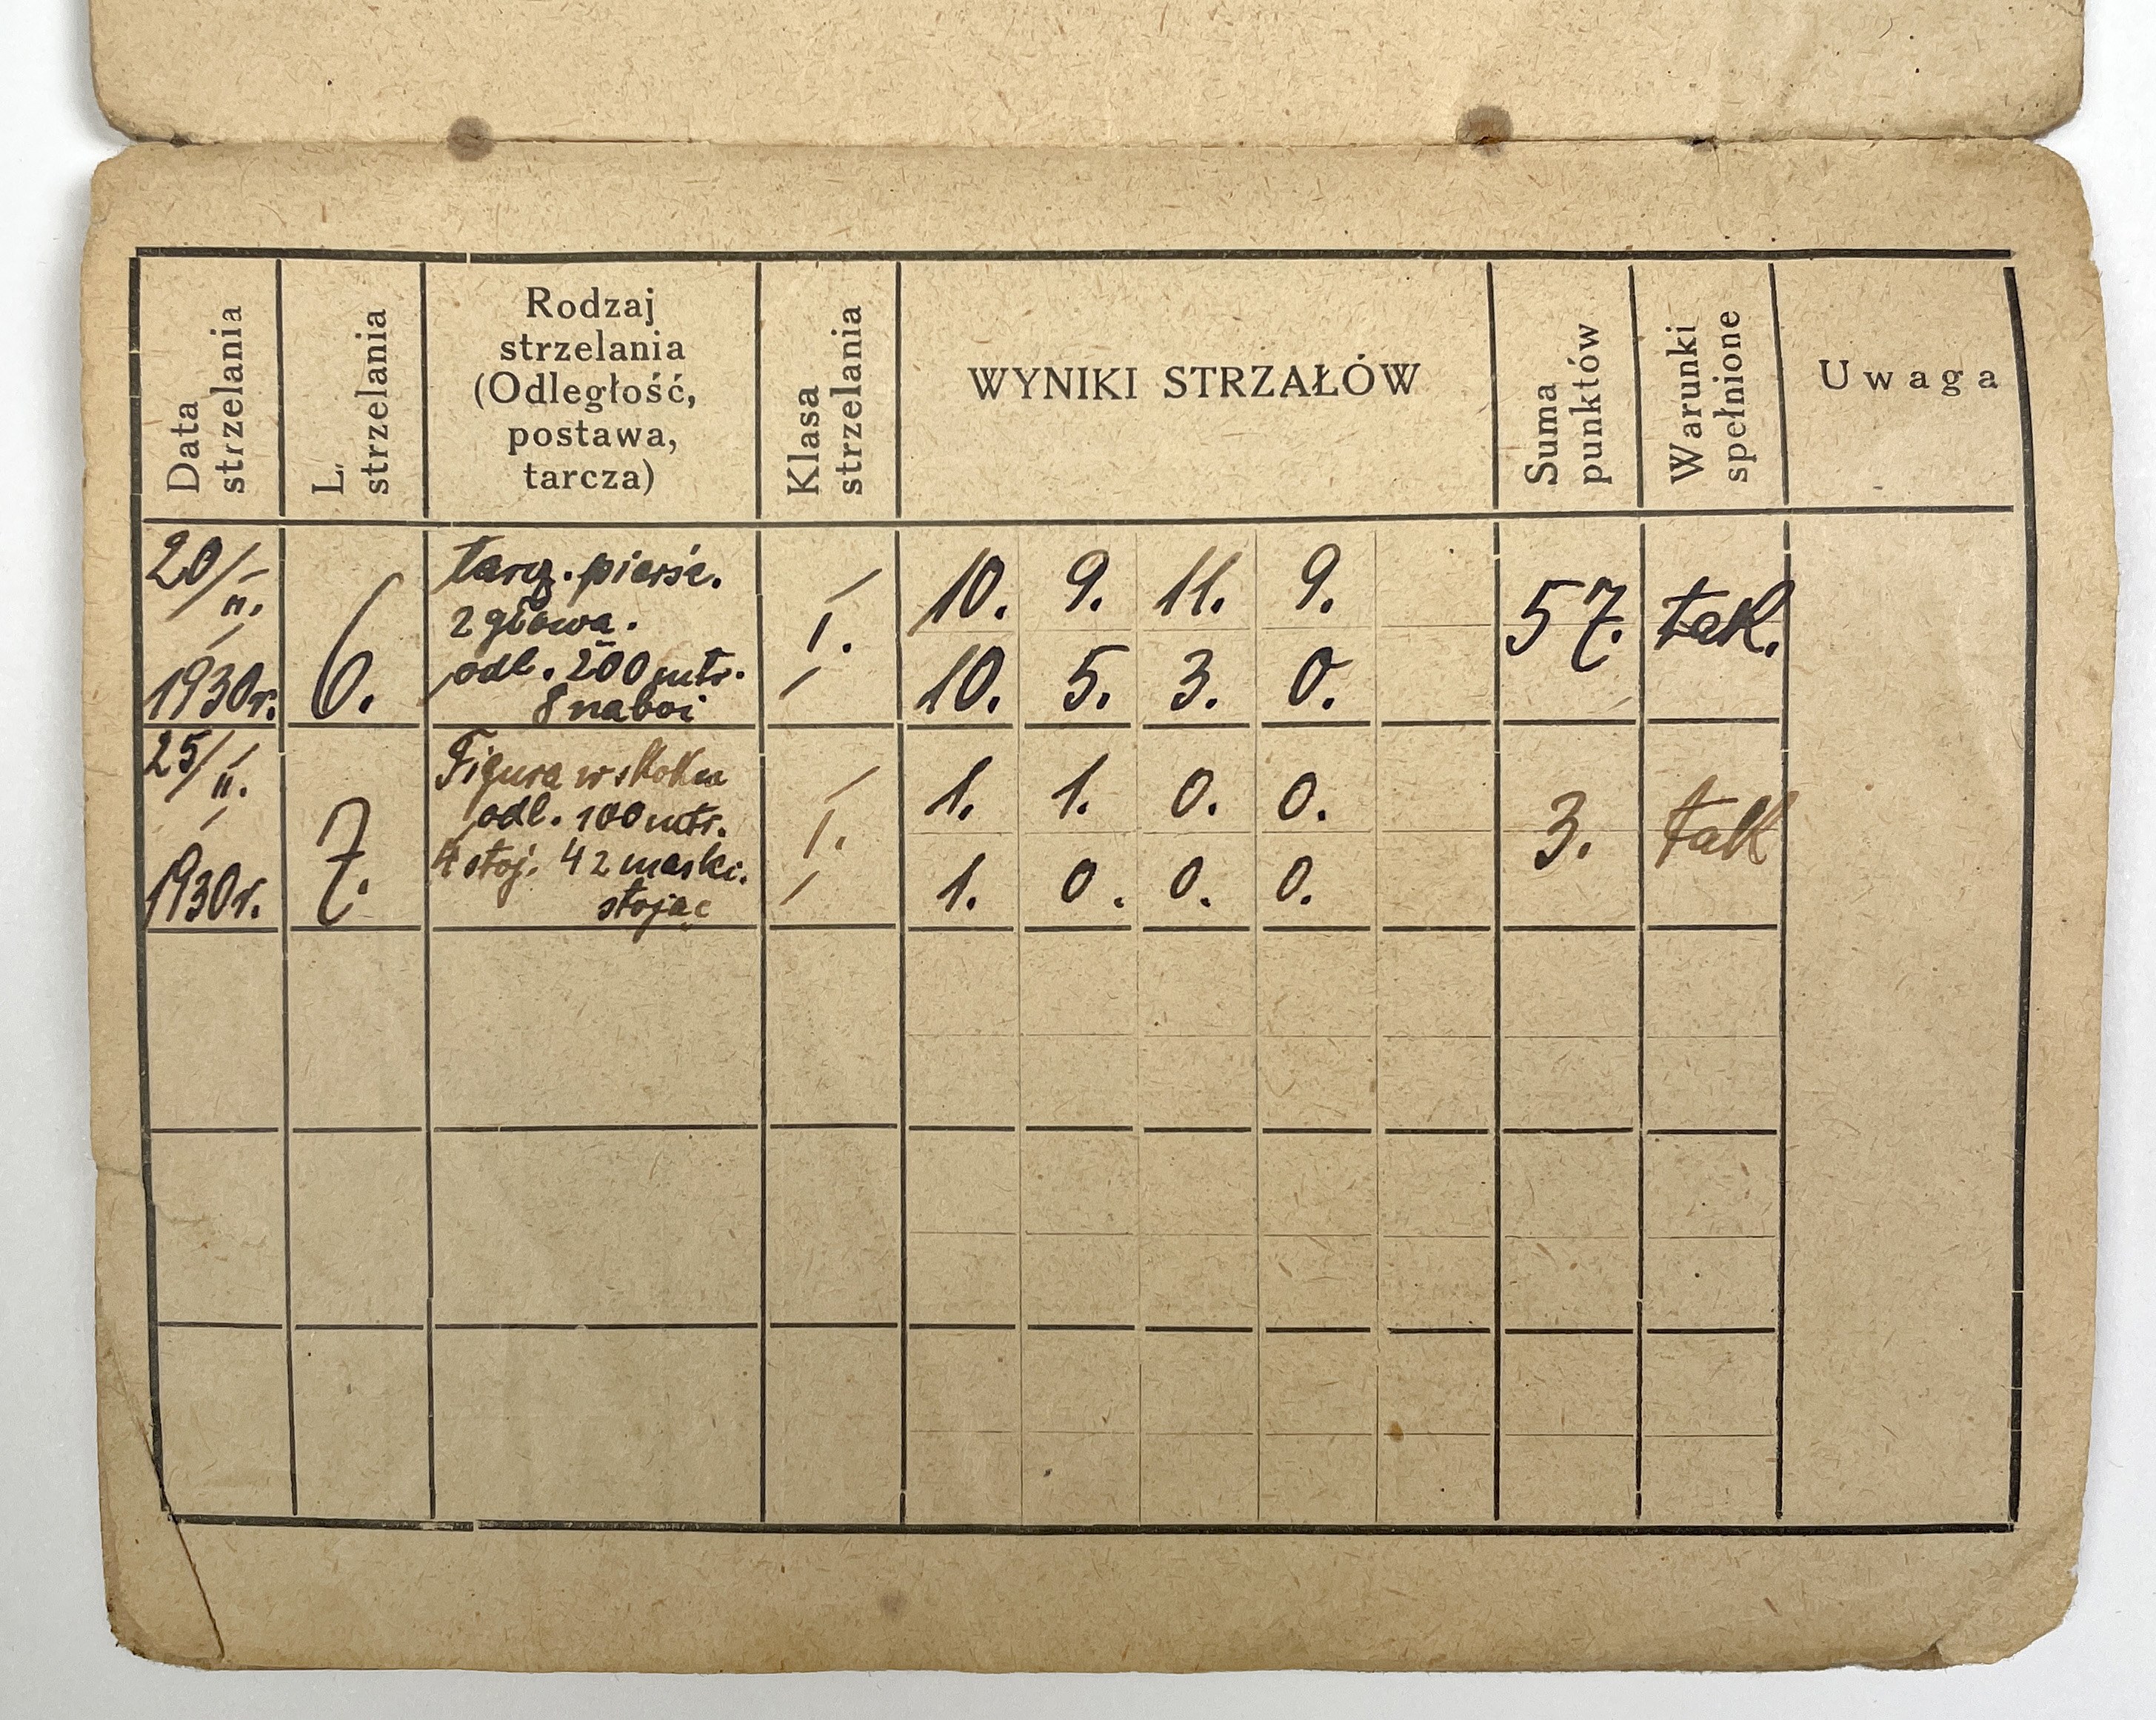 Data strzelania
L. strzelania
Rodzaj
strzelania
(Odległość,
postawa,
tarcza)
Klasa strzelania
WYNIKI STRZAŁÓW
Suma punktów
Warunki spełnione
Uwaga
20/II.
1930r.
6.
tarcz. pierśc.
z głową.
odl. 200 mtr.
8 naboi
I.
10. 9. 11. 9.
10. 5. 3. 0.
57.
tak.
25/II.
1930r.
7.
Figura w skoku
odl. 100 mtr.
4 stoj. 4 z maski.
stojąc
I.
1. 1. 0. 0.
1. 0. 0. 0.
3.
tak